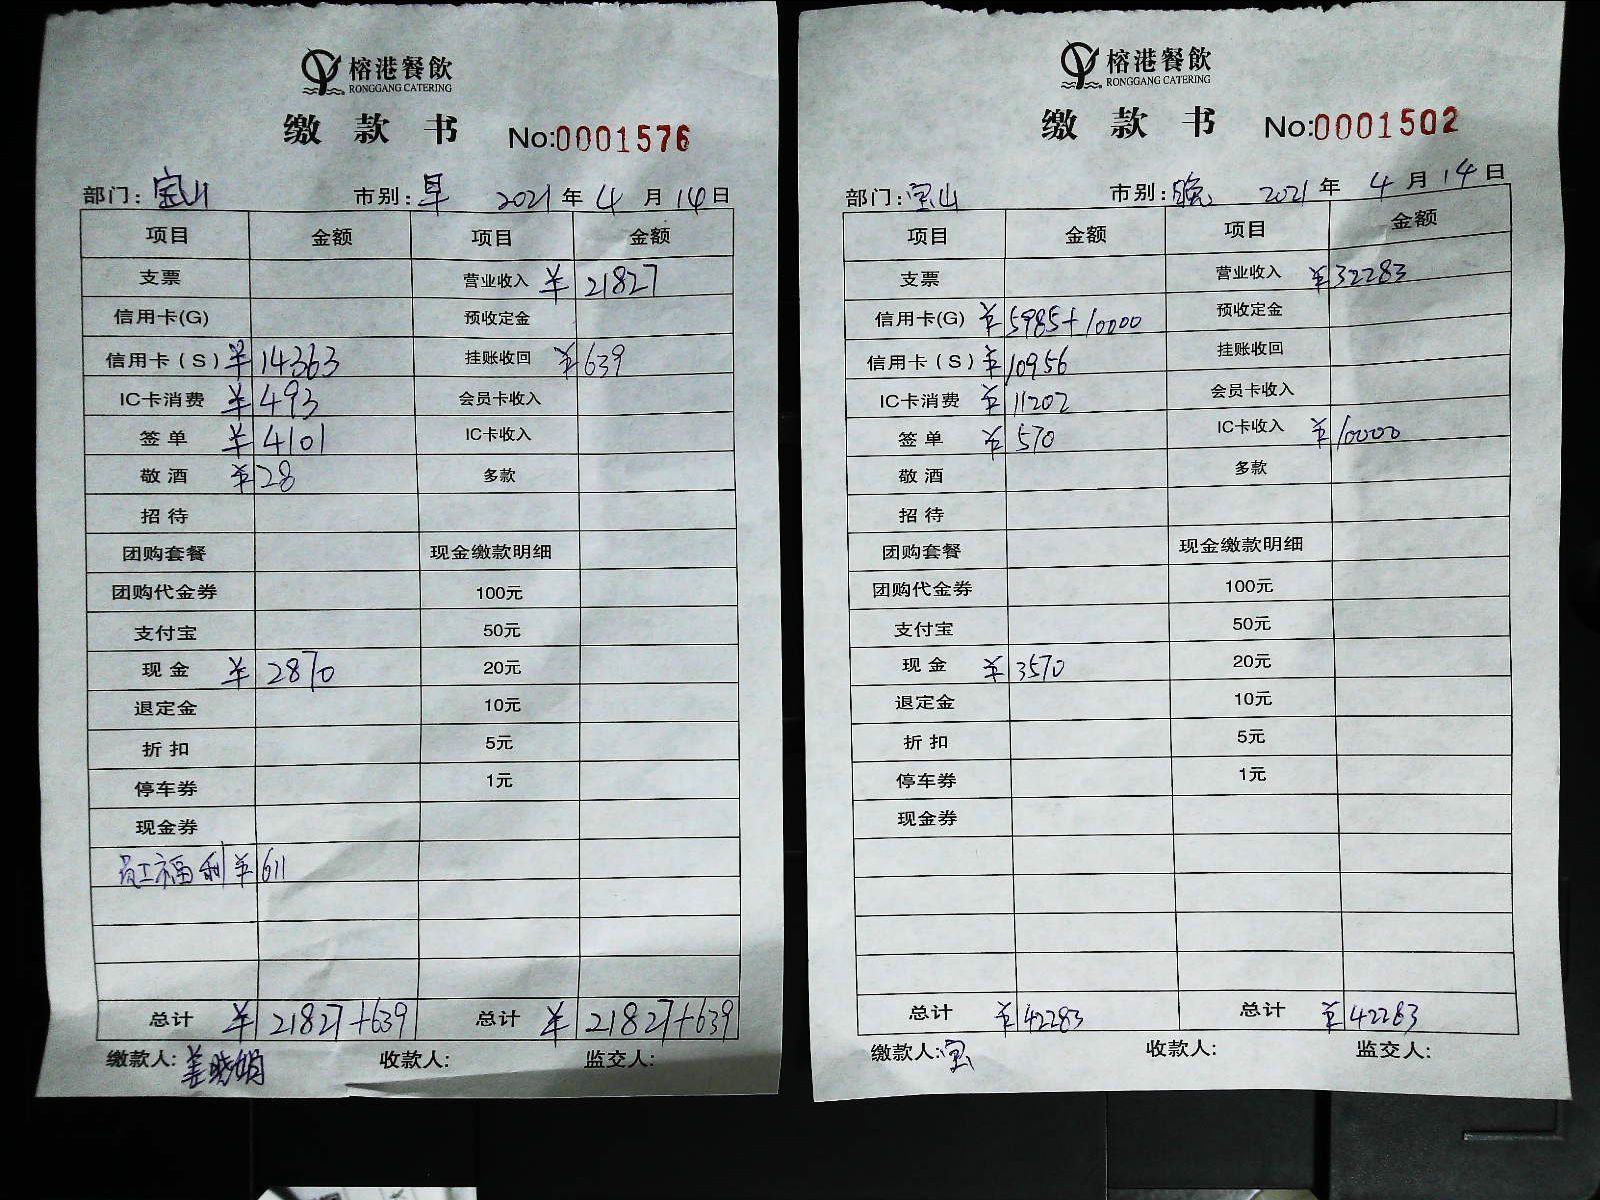 榕港餐飲
RONGGANG CATERING
缴款书 No:0001576
部门: 宝山 市别: 早 2021年4月14日
项目 金额 项目 金额
支票 营业收入 ¥21827
信用卡(G) 预收定金
信用卡(S) ¥14363 挂账收回 ¥639
IC卡消费 ¥493 会员卡收入
签单 ¥4101 IC卡收入
敬酒 ¥28 多款
招待
团购套餐 现金缴款明细
团购代金券 100元
支付宝 50元
现金 ¥2870 20元
退定金 10元
折扣 5元
停车券 1元
现金券
员工福利 ¥611
总计 ¥21827+639 总计 ¥21827+639
缴款人: 姜晓娟 收款人: 监交人:
榕港餐飲
RONGGANG CATERING
缴款书 No:0001502
部门: 宝山 市别: 晚 2021年4月14日
项目 金额 项目 金额
支票 营业收入 ¥32283
信用卡(G) ¥5985+10000 预收定金
信用卡(S) ¥10956 挂账收回
IC卡消费 ¥11202 会员卡收入
签单 ¥570 IC卡收入 ¥10000
敬酒 多款
招待
团购套餐 现金缴款明细
团购代金券 100元
支付宝 50元
现金 ¥3570 20元
退定金 10元
折扣 5元
停车券 1元
现金券
总计 ¥42283 总计 ¥42283
缴款人: 宝 收款人: 监交人: